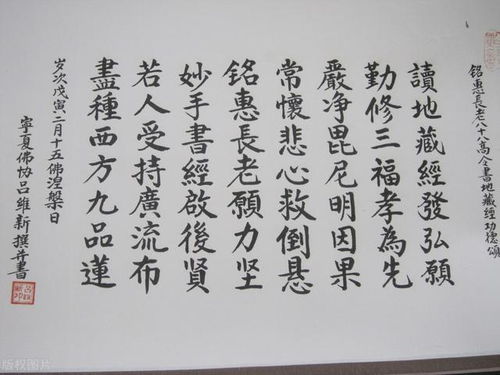 銘惠長老八十八高令書地藏經功德頌
讀地藏經發弘願
勤修三福孝為先
嚴净毘尼明因果
常懷悲心救倒悬
銘惠長老願力坚
妙手書經啟後賢
若人受持廣流布
盡種西方九品蓮
岁次戊寅二月十五佛涅槃日
寧夏佛协吕維新撰并書
版权图片